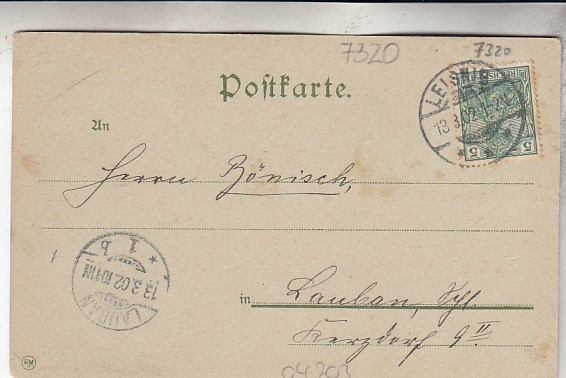 7320
7320
Postkarte.
LEISNIG
13.3.02
5
5
An
Herrn Bönisch,
LAUBAN
13.3.02.10-11N
1 b
in Lauban, Schl.
Kerzdorf 9 II
04203
RM